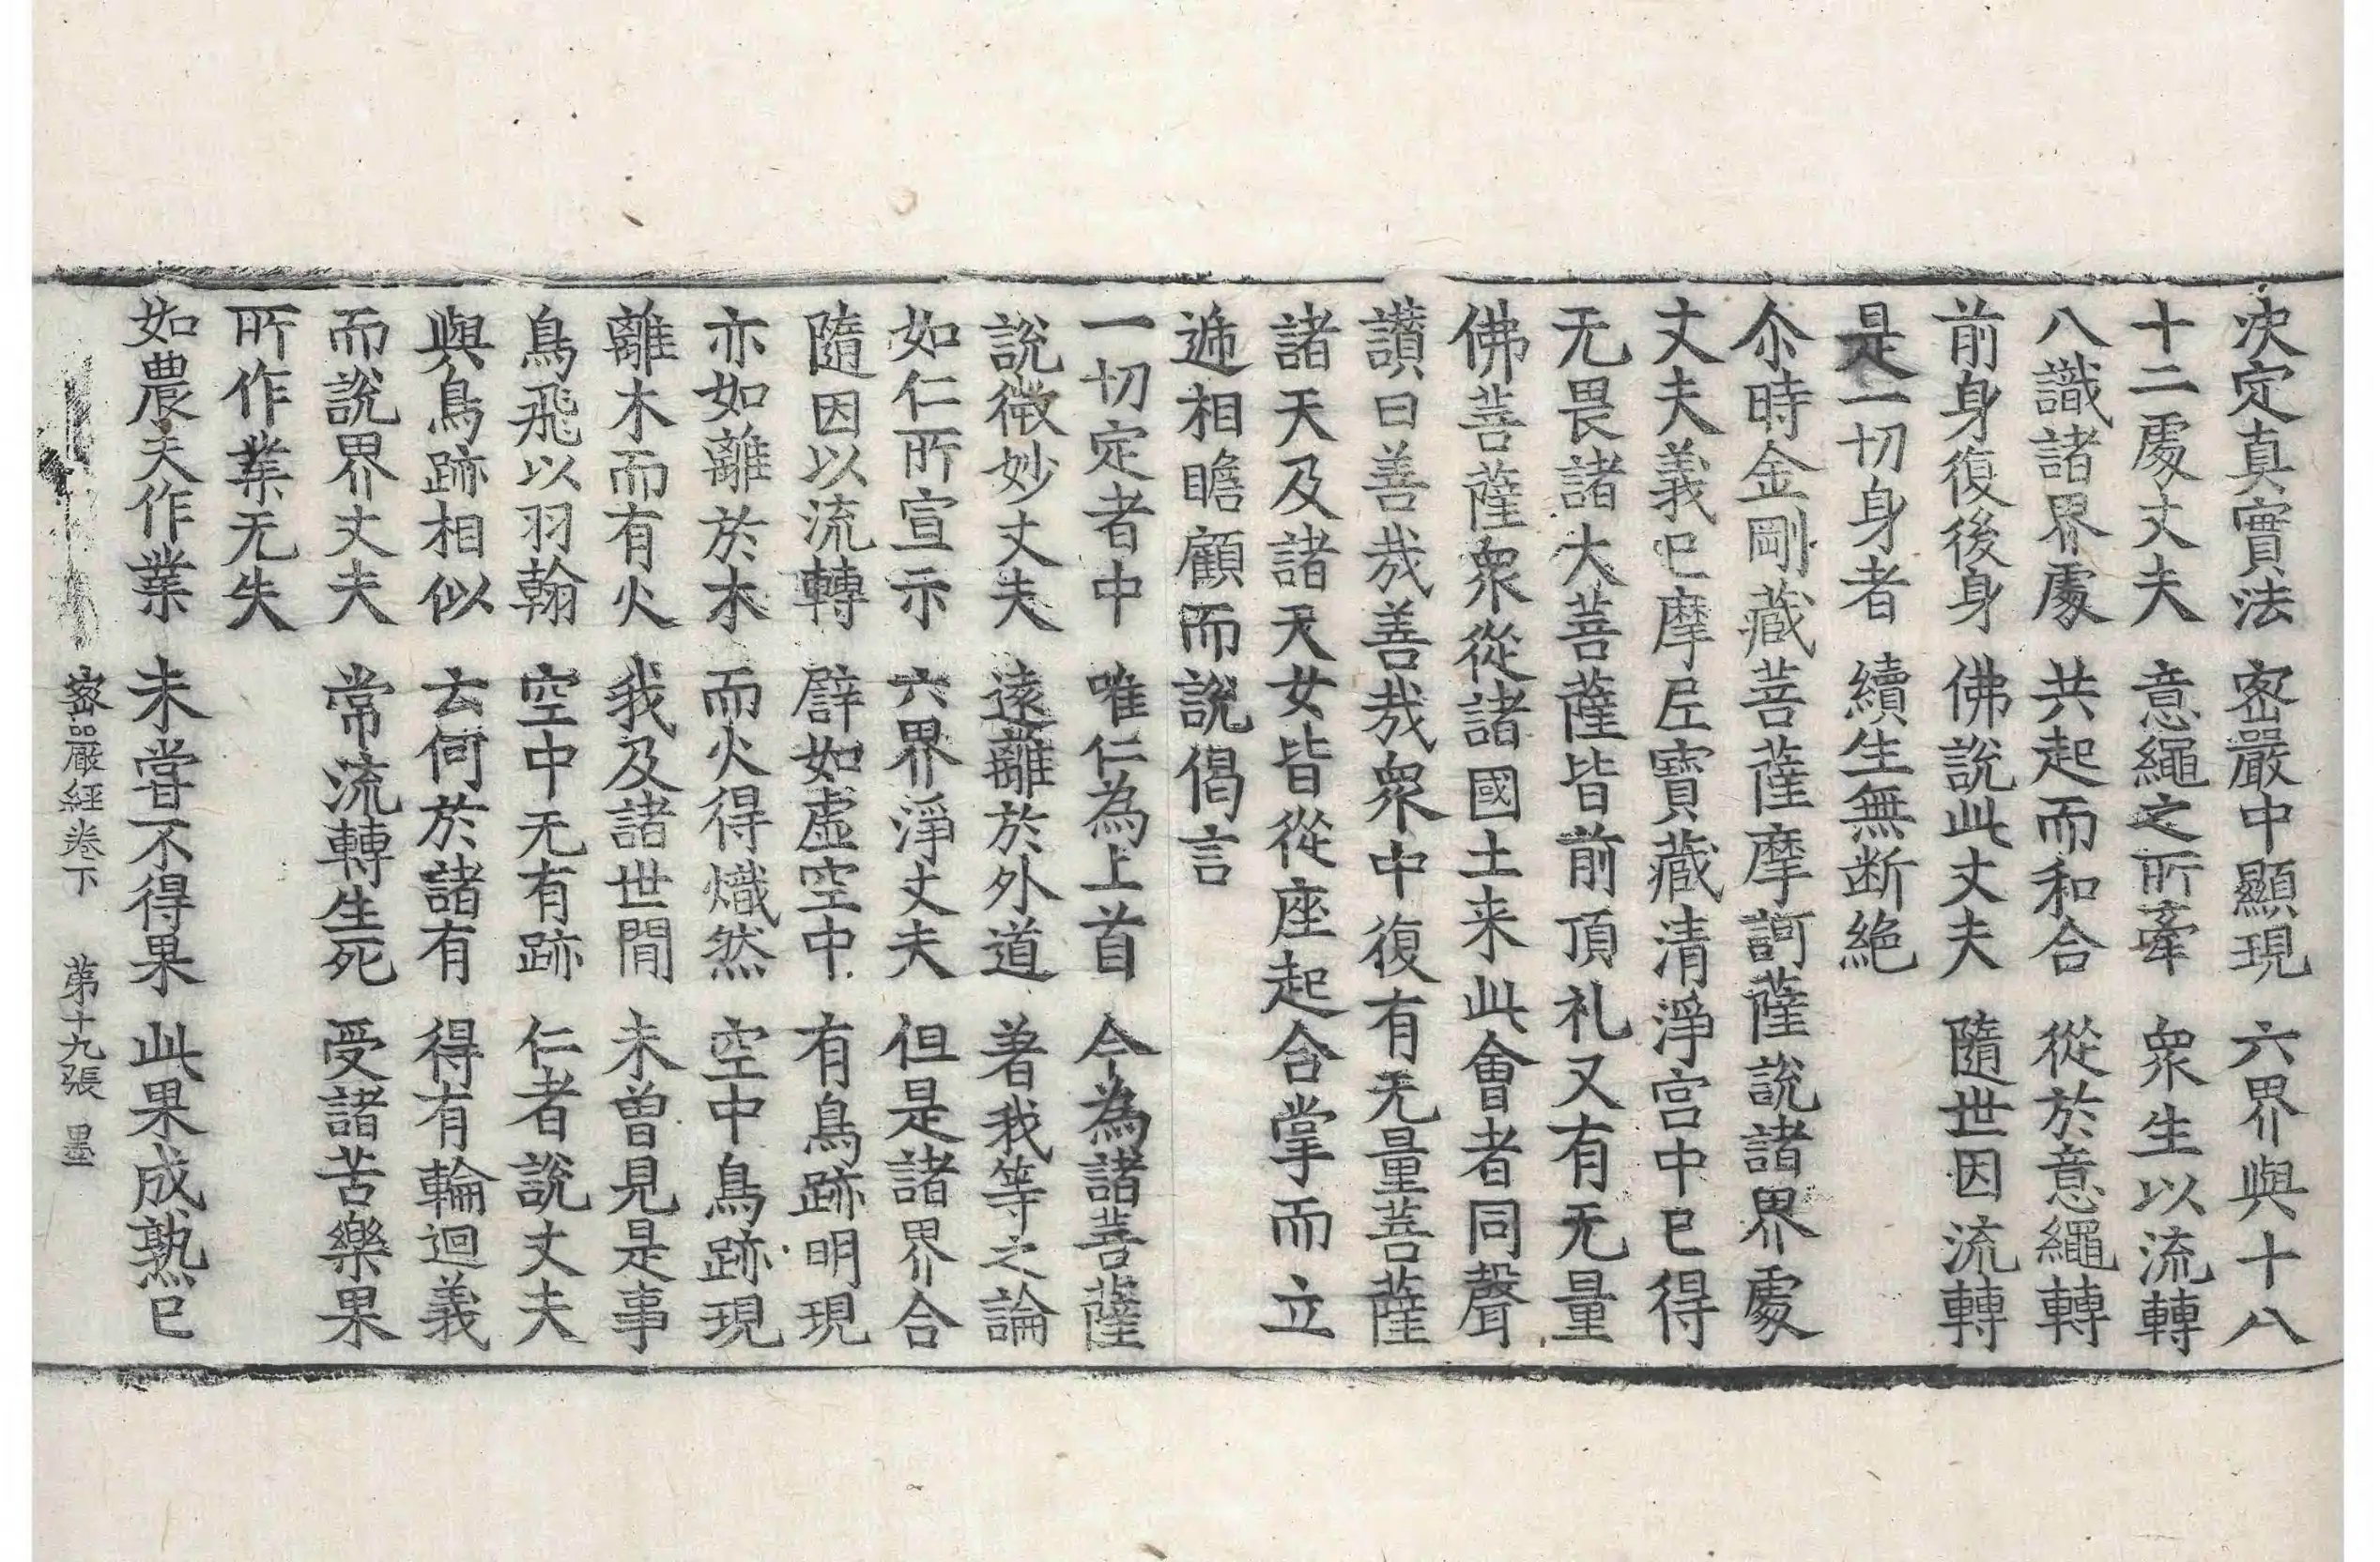 決定真實法 密嚴中顯現 六界與十八
十二處丈夫 意繩之所牽 眾生以流轉
八識諸界處 共起而和合 從於意繩轉
前身復後身 佛說此丈夫 隨世因流轉
是一切身者 續生無断絕
尒時金剛藏菩薩摩訶薩說諸界處
丈夫義已摩尼寶藏清淨宮中已得
无畏諸大菩薩皆前頂礼又有无量
佛菩薩眾從諸國土来此會者同聲
讃曰善哉善哉眾中復有无量菩薩
諸天及諸天女皆從座起合掌而立
遞相瞻顧而說偈言
一切定者中 唯仁為上首 今為諸菩薩
說微妙丈夫 遠離於外道 著我等之論
如仁所宣示 六界淨丈夫 但是諸界合
隨因以流轉 譬如虛空中 有鳥跡明現
亦如離於木 而火得熾然 空中鳥跡現
離木而有火 我及諸世間 未曾見是事
鳥飛以羽翰 空中无有跡 仁者說丈夫
與鳥跡相似 云何於諸有 得有輪迴義
而說界丈夫 常流轉生死 受諸苦樂果
所作業无失
如農夫作業 未嘗不得果 此果成熟已
密嚴經卷下 第十九張 墨